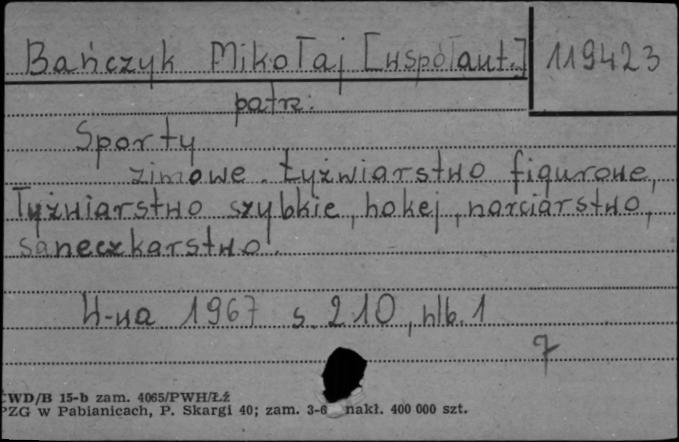 Bańczyk Mikołaj [współaut.] 119423
patrz:
Sporty
zimowe. Łyżwiarstwo figurowe,
łyżwiarstwo szybkie, hokej, narciarstwo,
saneczkarstwo.
W-wa 1967 s. 210, nlb. 1
7
CWD/B 15-b zam. 4065/PWH/Łź
PZG w Pabianicach, P. Skargi 40; zam. 3-6 nakł. 400 000 szt.